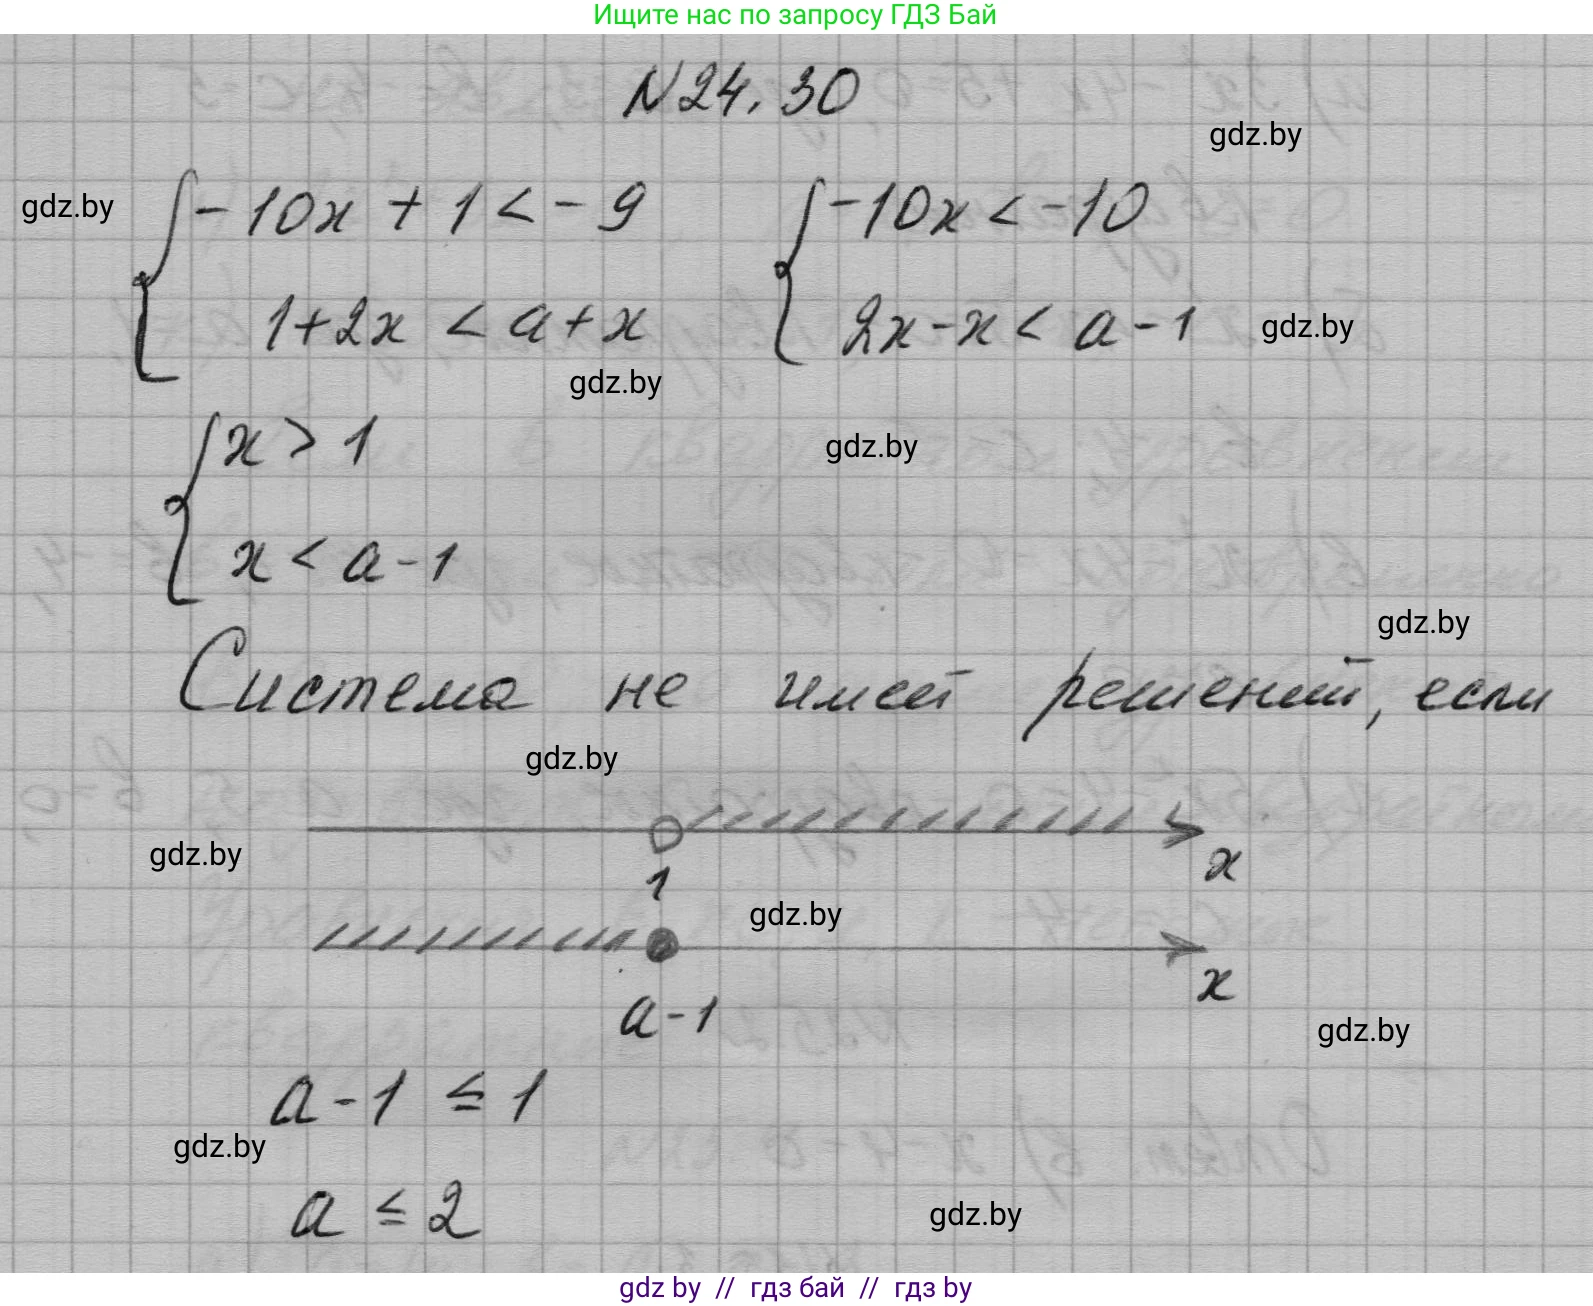 Ищите нас по запросу ГДЗ Бай
N24.30
gdz.by
gdz.by
-10x + 1 < -9
-10x < -10
1+2x < a+x
2x-x < a-1
gdz.by
gdz.by
x > 1
gdz.by
x < a-1
gdz.by
Система не имеет решений, если
gdz.by
gdz.by
x
1
gdz.by
x
a-1
gdz.by
a-1 ≤ 1
gdz.by
a ≤ 2
gdz.by
gdz by // гдз бай // гдз by